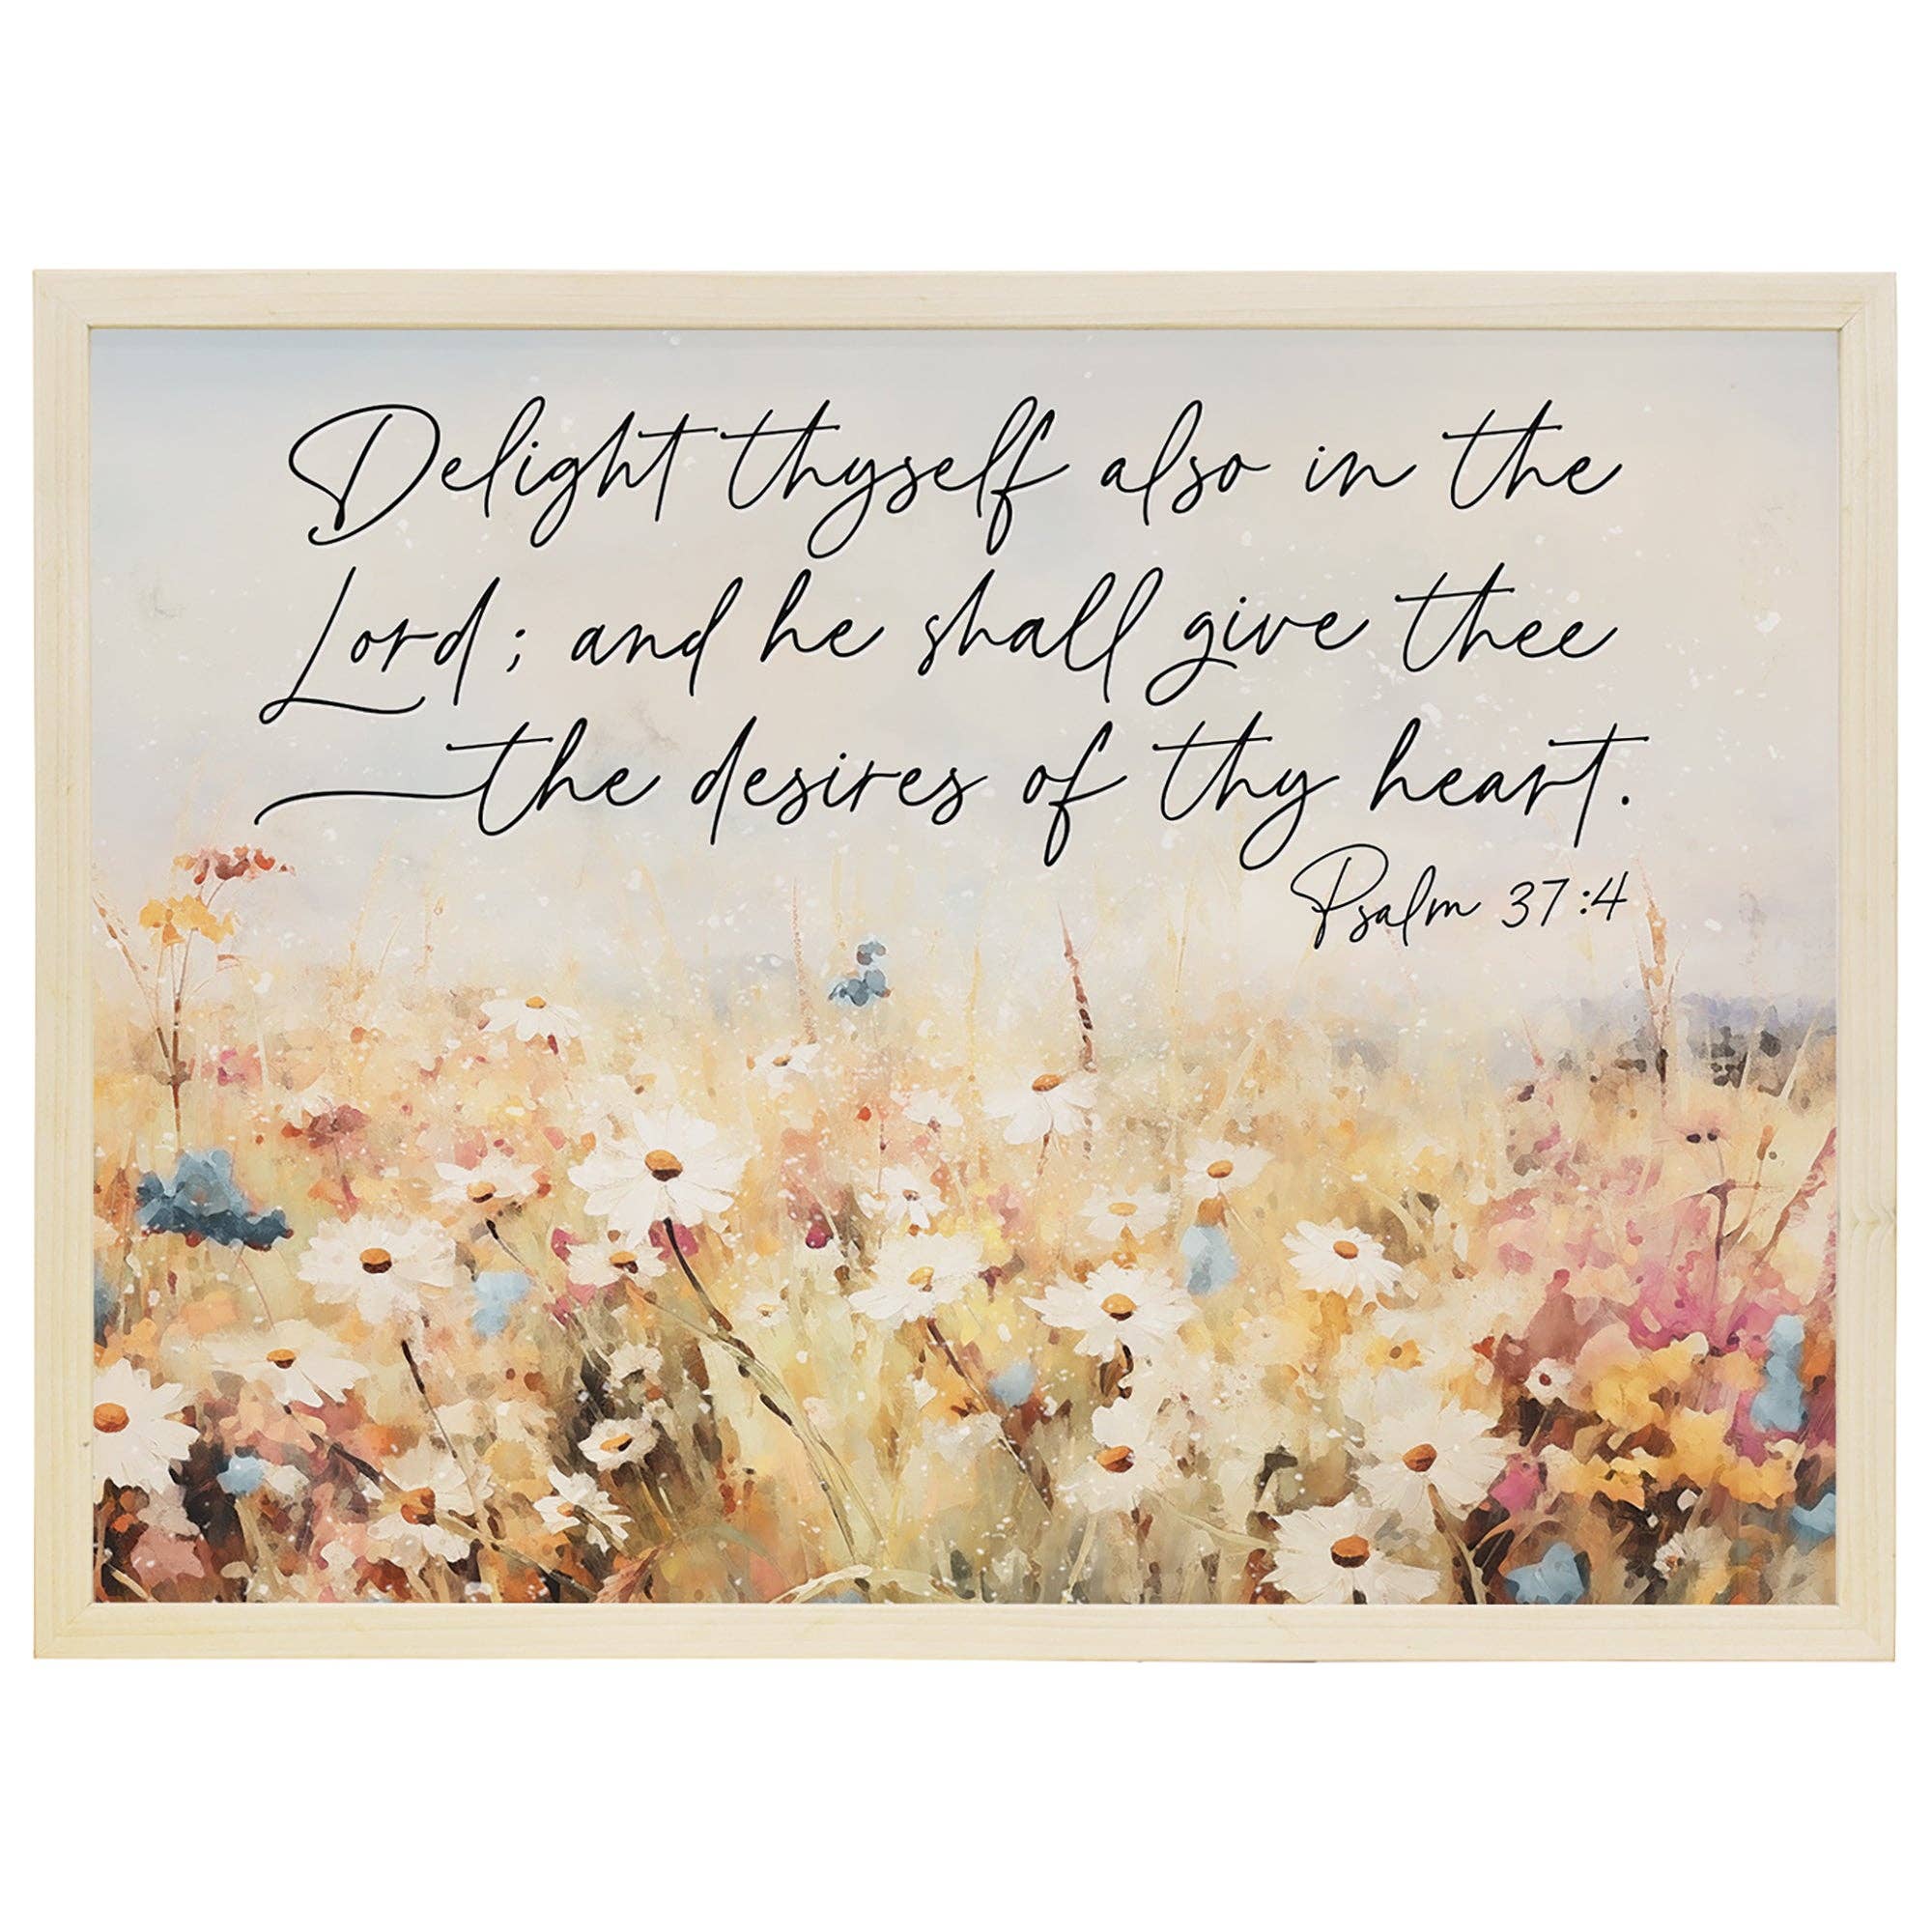 Delight thyself also in the
Lord; and he shall give thee
the desires of thy heart.
Psalm 37:4